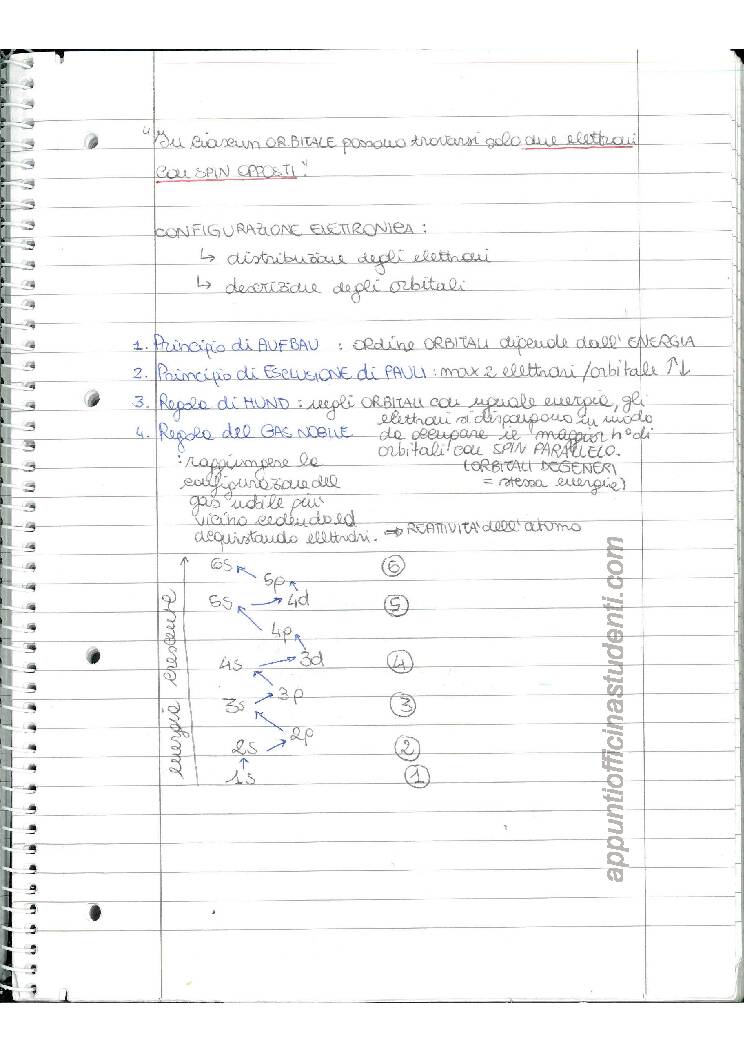 "In ciascun ORBITALE possono trovarsi solo due elettroni
con SPIN OPPOSTI".
CONFIGURAZIONE ELETTRONICA:
↳ distribuzione degli elettroni
↳ descrizione degli orbitali
1. Principio di AUFBAU : ORdine ORBITALI dipende dall'ENERGIA
2. Principio di ESCLUSIONE di PAULI: max 2 elettroni/orbitale ↑↓
3. Regola di HUND: negli ORBITALI con uguale energia, gli
elettroni si dispongono in modo
da occupare il maggior n° di
orbitali con SPIN PARALLELO.
(ORBITALI DEGENERI
= stessa energia)
4. Regola del GAS NOBILE
: raggiungere la
configurazione del
gas nobile più
vicino cedendo ed
acquistando elettroni. → REATTIVITÀ dell'atomo
energia crescente
6s 6
5p
5s 4d 5
4p
4s 3d 4
3p
3s 3
2p
2s 2
1s 1
appuntiofficinastudenti.com